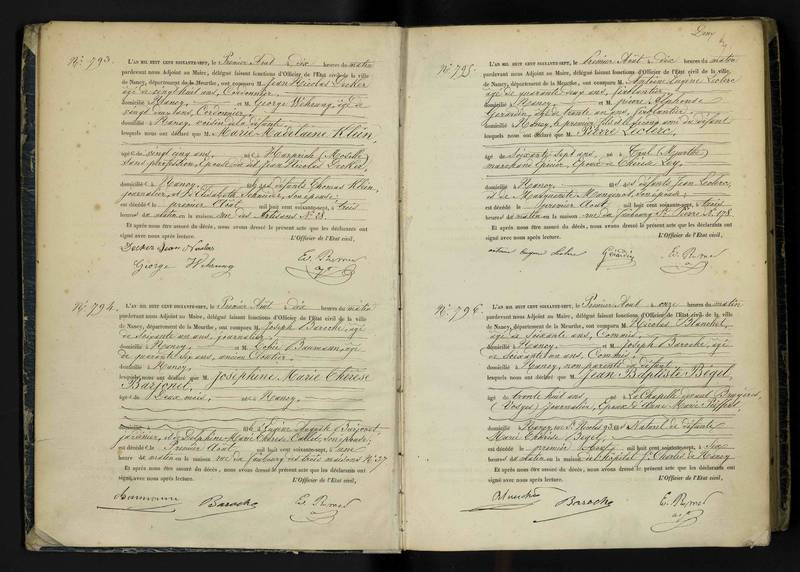 N° 793.
L'AN MIL HUIT CENT SOIXANTE-SEPT, le Premier Août dix heures du matin
pardevant nous Adjoint au Maire, délégué faisant fonctions d'Officier de l'Etat civil de la ville
de Nancy, département de la Meurthe, ont comparu M. Jean Nicolas Decker
âgé de vingt huit ans, Cordonnier,
domicilié à Nancy, et M. George Wehrung, âgé de
vingt ans, Cordonnier,
domicilié à Nancy, voisin de la défunte
lesquels nous ont déclaré que M. Marie Madelaine Klein,
âgé de vingt cinq ans, né à (Moselle)
sans profession, Epouse de Jean Nicolas Decker,
domicilié à Nancy, fille des défunts Thomas Klein,
journalier, et Elisabeth Schneider, son épouse,
est décédé le premier Août mil huit cent soixante-sept, à trois
heures du matin en la maison rue des Artisans N° 28.
Et après nous être assuré du décès, nous avons dressé le présent acte que les déclarants ont
signé avec nous après lecture. L'Officier de l'Etat civil,
Decker Jean Nicolas
George Wehrung
N° 794.
L'AN MIL HUIT CENT SOIXANTE-SEPT, le Premier Août dix heures du matin
pardevant nous Adjoint au Maire, délégué faisant fonctions d'Officier de l'Etat civil de la ville
de Nancy, département de la Meurthe, ont comparu M. Joseph Baroche, âgé
de soixante un ans, journalier,
domicilié à Nancy, et M. Baumann, âgé
de quarante six ans, ancien
domicilié à Nancy,
lesquels nous ont déclaré que M. Joséphine Marie Thérèse
Barjonet,
âgé de Deux mois, né à Nancy,
fille de Eugène Auguste Barjonet,
jardinier, et de Delphine Marie Thérèse Collet, son épouse,
est décédé le Premier Août mil huit cent soixante-sept, à une
heure du matin en la maison rue du faubourg des trois maisons N° 27
Et après nous être assuré du décès, nous avons dressé le présent acte que les déclarants ont
signé avec nous après lecture. L'Officier de l'Etat civil,
Baumann Baroche
N° 795.
L'AN MIL HUIT CENT SOIXANTE-SEPT, le Premier Août à dix heures du matin
pardevant nous Adjoint au Maire, délégué faisant fonctions d'Officier de l'Etat civil de la ville
de Nancy, département de la Meurthe, ont comparu M. Antoine Eugène Leclerc
âgé de quarante deux ans, ferblantier,
domicilié à Nancy, et M. pierre Alphonse
Gérardin, âgé de trente un ans, ferblantier,
domicilié à Nancy, le premier fils du défunt
lesquels nous ont déclaré que M. Pierre Leclerc,
âgé de Soixante sept ans, né à Toul (Meurthe)
marchand Epicier, Epoux de Thérèse
domicilié à Nancy, fils des défunts Jean Leclerc,
et de Marguerite Mangenot, son épouse,
est décédé le premier Août mil huit cent soixante-sept, à trois
heures du matin en la maison rue du faubourg St Pierre N° 178
Et après nous être assuré du décès, nous avons dressé le présent acte que les déclarants ont
signé avec nous après lecture. L'Officier de l'Etat civil,
antoine eugene leclerc Gérardin
N° 796.
L'AN MIL HUIT CENT SOIXANTE-SEPT, le Premier Août à onze heures du matin
pardevant nous Adjoint au Maire, délégué faisant fonctions d'Officier de l'Etat civil de la ville
de Nancy, département de la Meurthe, ont comparu M. Nicolas Blanchet,
âgé de soixante ans, Commis,
domicilié à Nancy, et M. Joseph Baroche, âgé
de soixante un ans, Commis,
domicilié à Nancy, non parents du défunt
lesquels nous ont déclaré que M. Jean Baptiste Begel,
âgé de trente huit ans, né à La Chapelle devant Bruyères,
(Vosges) journalier, Epoux de Anne Marie
domicilié à Nancy, rue St Nicolas fils Naturel de défunte
Marie Thérèse Begel,
est décédé le premier Août mil huit cent soixante-sept, à six
heures du matin en la maison de l'hôpital St Charles de Nancy
Et après nous être assuré du décès, nous avons dressé le présent acte que les déclarants ont
signé avec nous après lecture. L'Officier de l'Etat civil,
Baroche